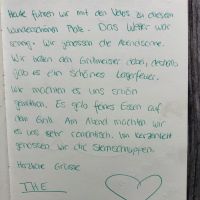 Heute fuhren wir mit den Velos zu diesem
wunderschönen Platz. Das Wetter war
sonnig. Wir genossen die Abendsonne.
Wir hatten den Grillmeister dabei, deshalb
gab es ein schönes Lagerfeuer.
Wir machten es uns schön
gemütlich. Es gab feines Essen auf
dem Grill. Am Abend machten wir
es uns sehr romantisch. Im Kerzenlicht
genossen wir die Sternschnuppen.
Herzliche Grüsse
THE